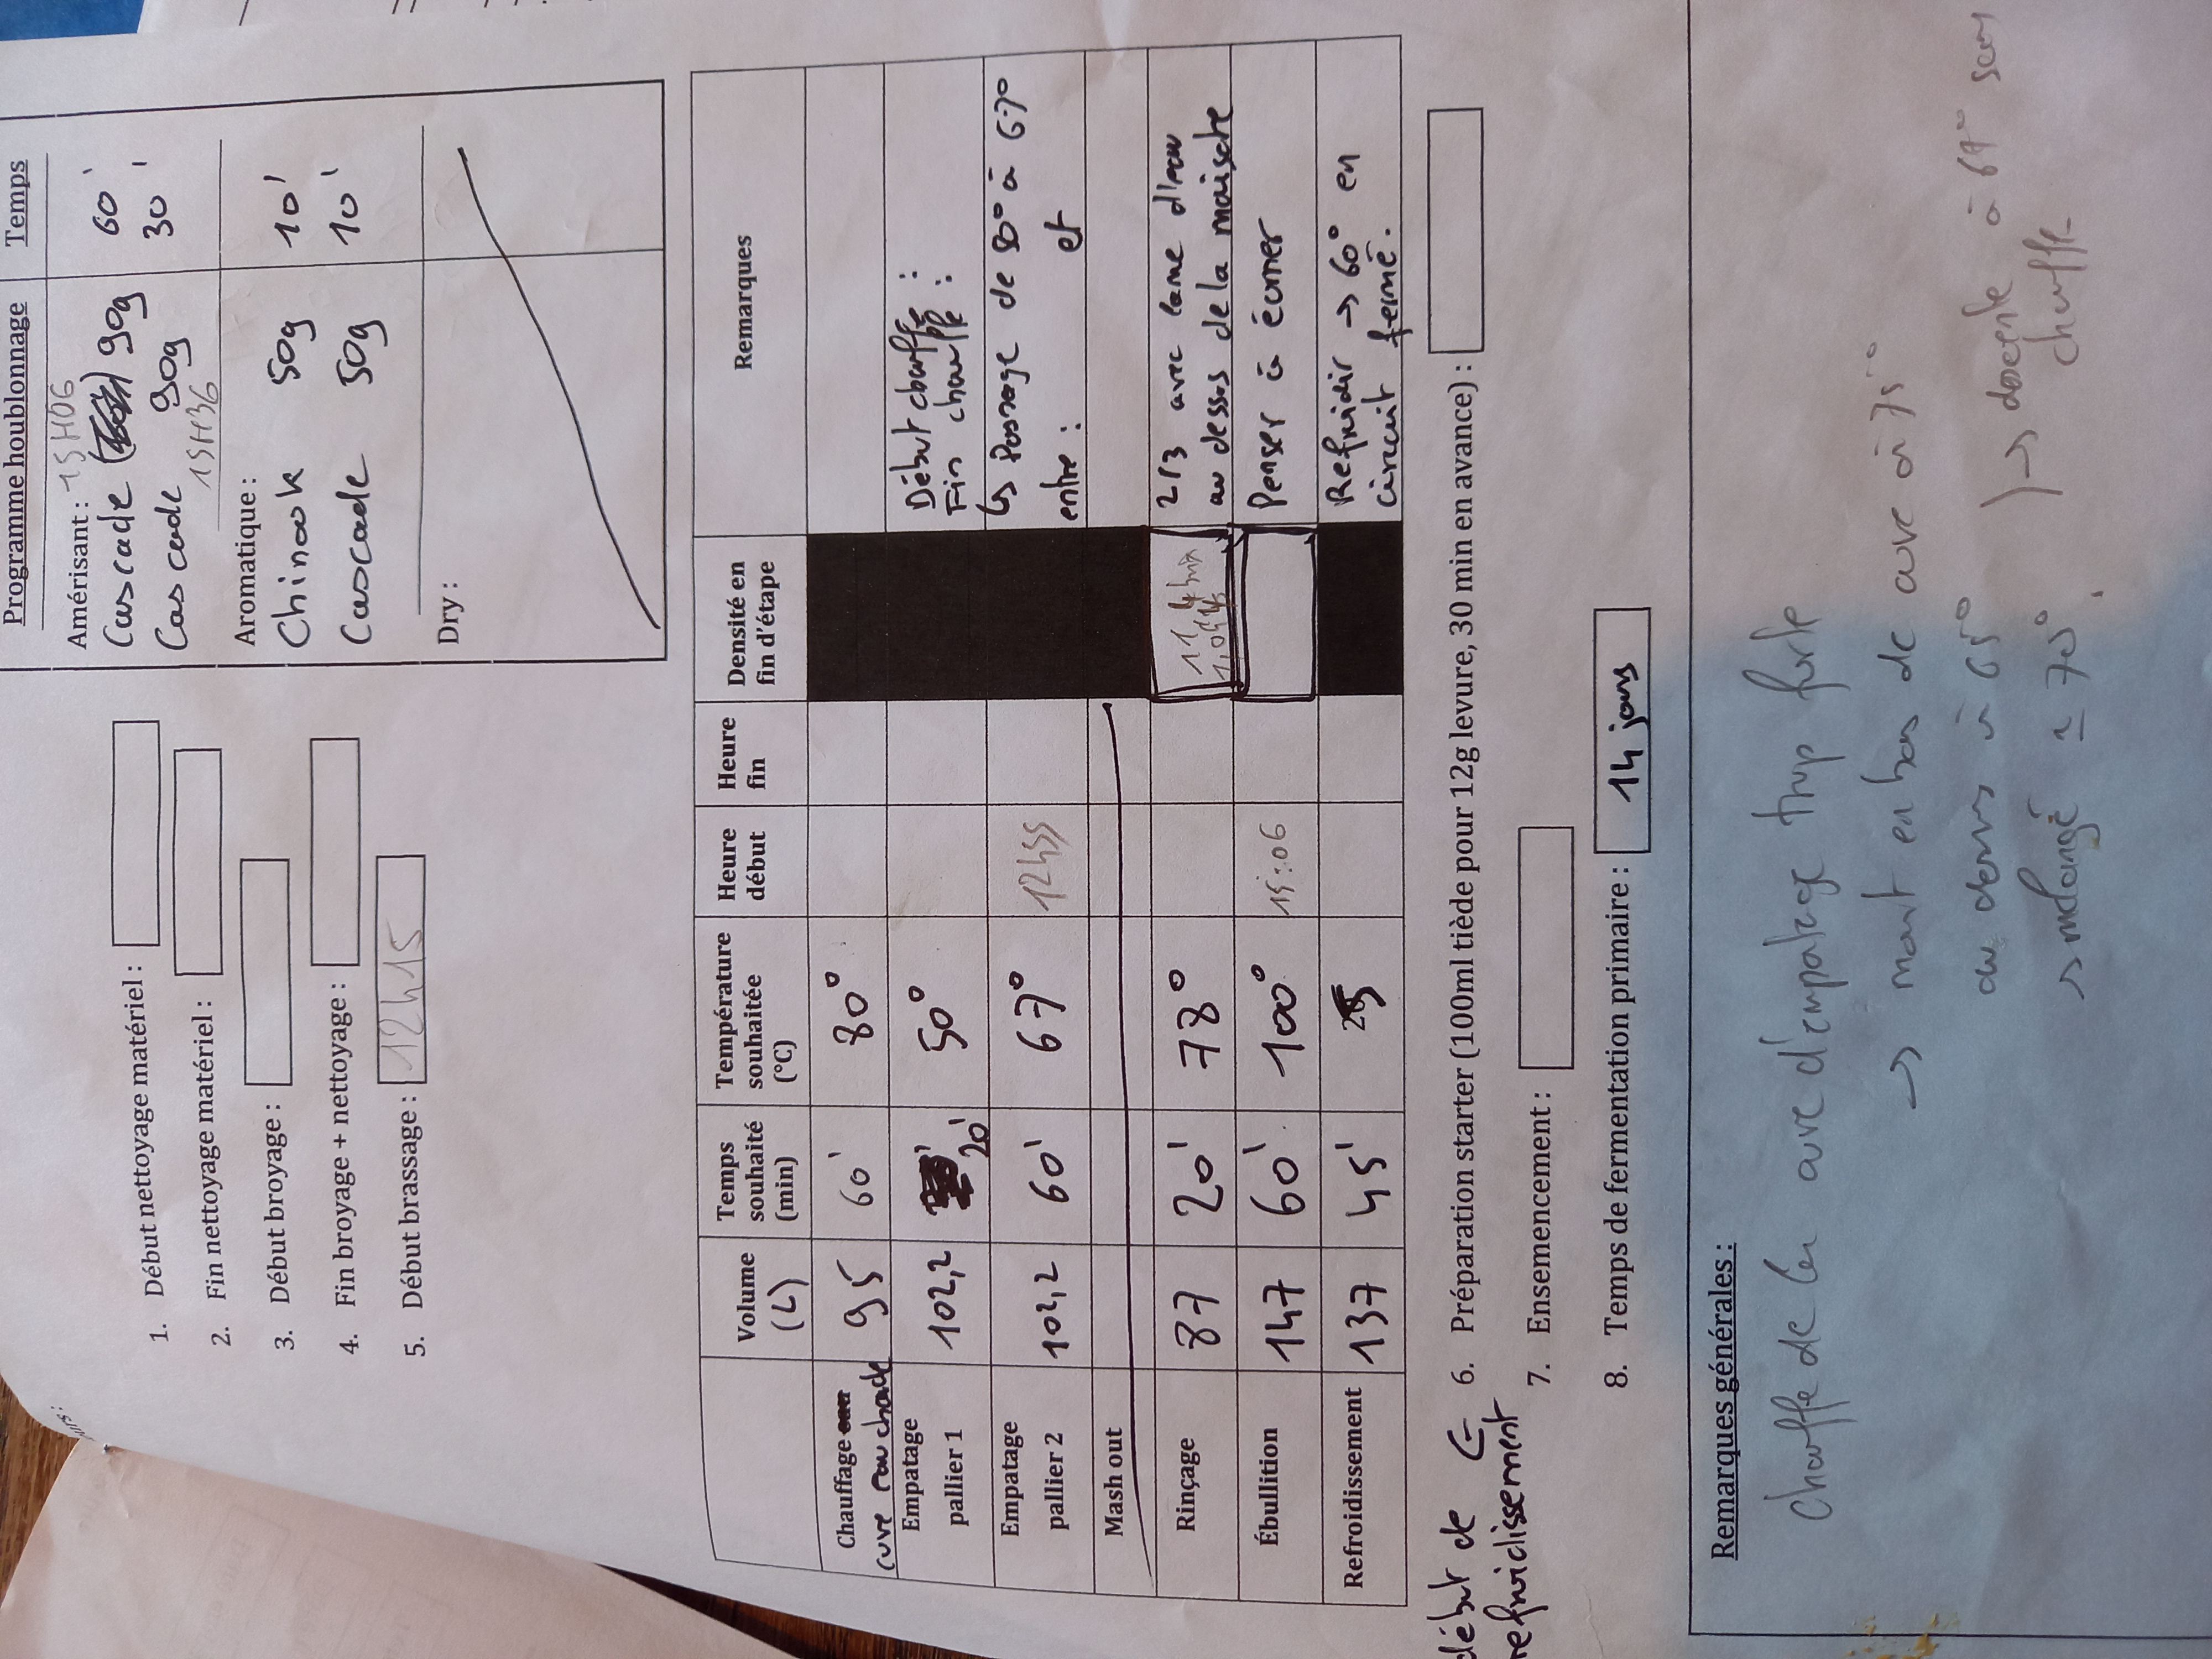 urs :
1. Début nettoyage matériel :
2. Fin nettoyage matériel :
3. Début broyage :
4. Fin broyage + nettoyage :
5. Début brassage : 12h15
Programme houblonnage Temps
Amérisant : 15H06
Cascade 90g 60'
Cascade 90g 30'
15H36
Aromatique :
Chinook 50g 10'
Cascade 50g 10'
Dry :
Volume (L) Temps souhaité (min) Température souhaitée (°C) Heure début Heure fin Densité en fin d'étape Remarques
Chauffage eau cuve eau chaude 95 60' 80°
Empatage pallier 1 102,2 20' 50° Début chauffe :
Fin chauffe :
Empatage pallier 2 102,2 60' 67° 12h55 ↳ Passage de 50° à 67°
entre : et
Mash out
Rinçage 87 20' 78° 11,4 brix 2/3 avec lame d'eau
au dessus de la maische
Ébullition 147 60' 100° 15:06 Penser à écumer
Refroidissement 137 45' 25 Refroidir → 60° en
circuit fermé.
début de ← 6. Préparation starter (100ml tiède pour 12g levure, 30 min en avance) :
refroidissement
7. Ensemencement :
8. Temps de fermentation primaire : 14 jours
Remarques générales :
Chauffe de la cuve d'empatage trop forte
→ mout en bas de cuve à 75°
au dessus à 65°
mélangé ≃ 70°. → descente à 67° sans
chauffe